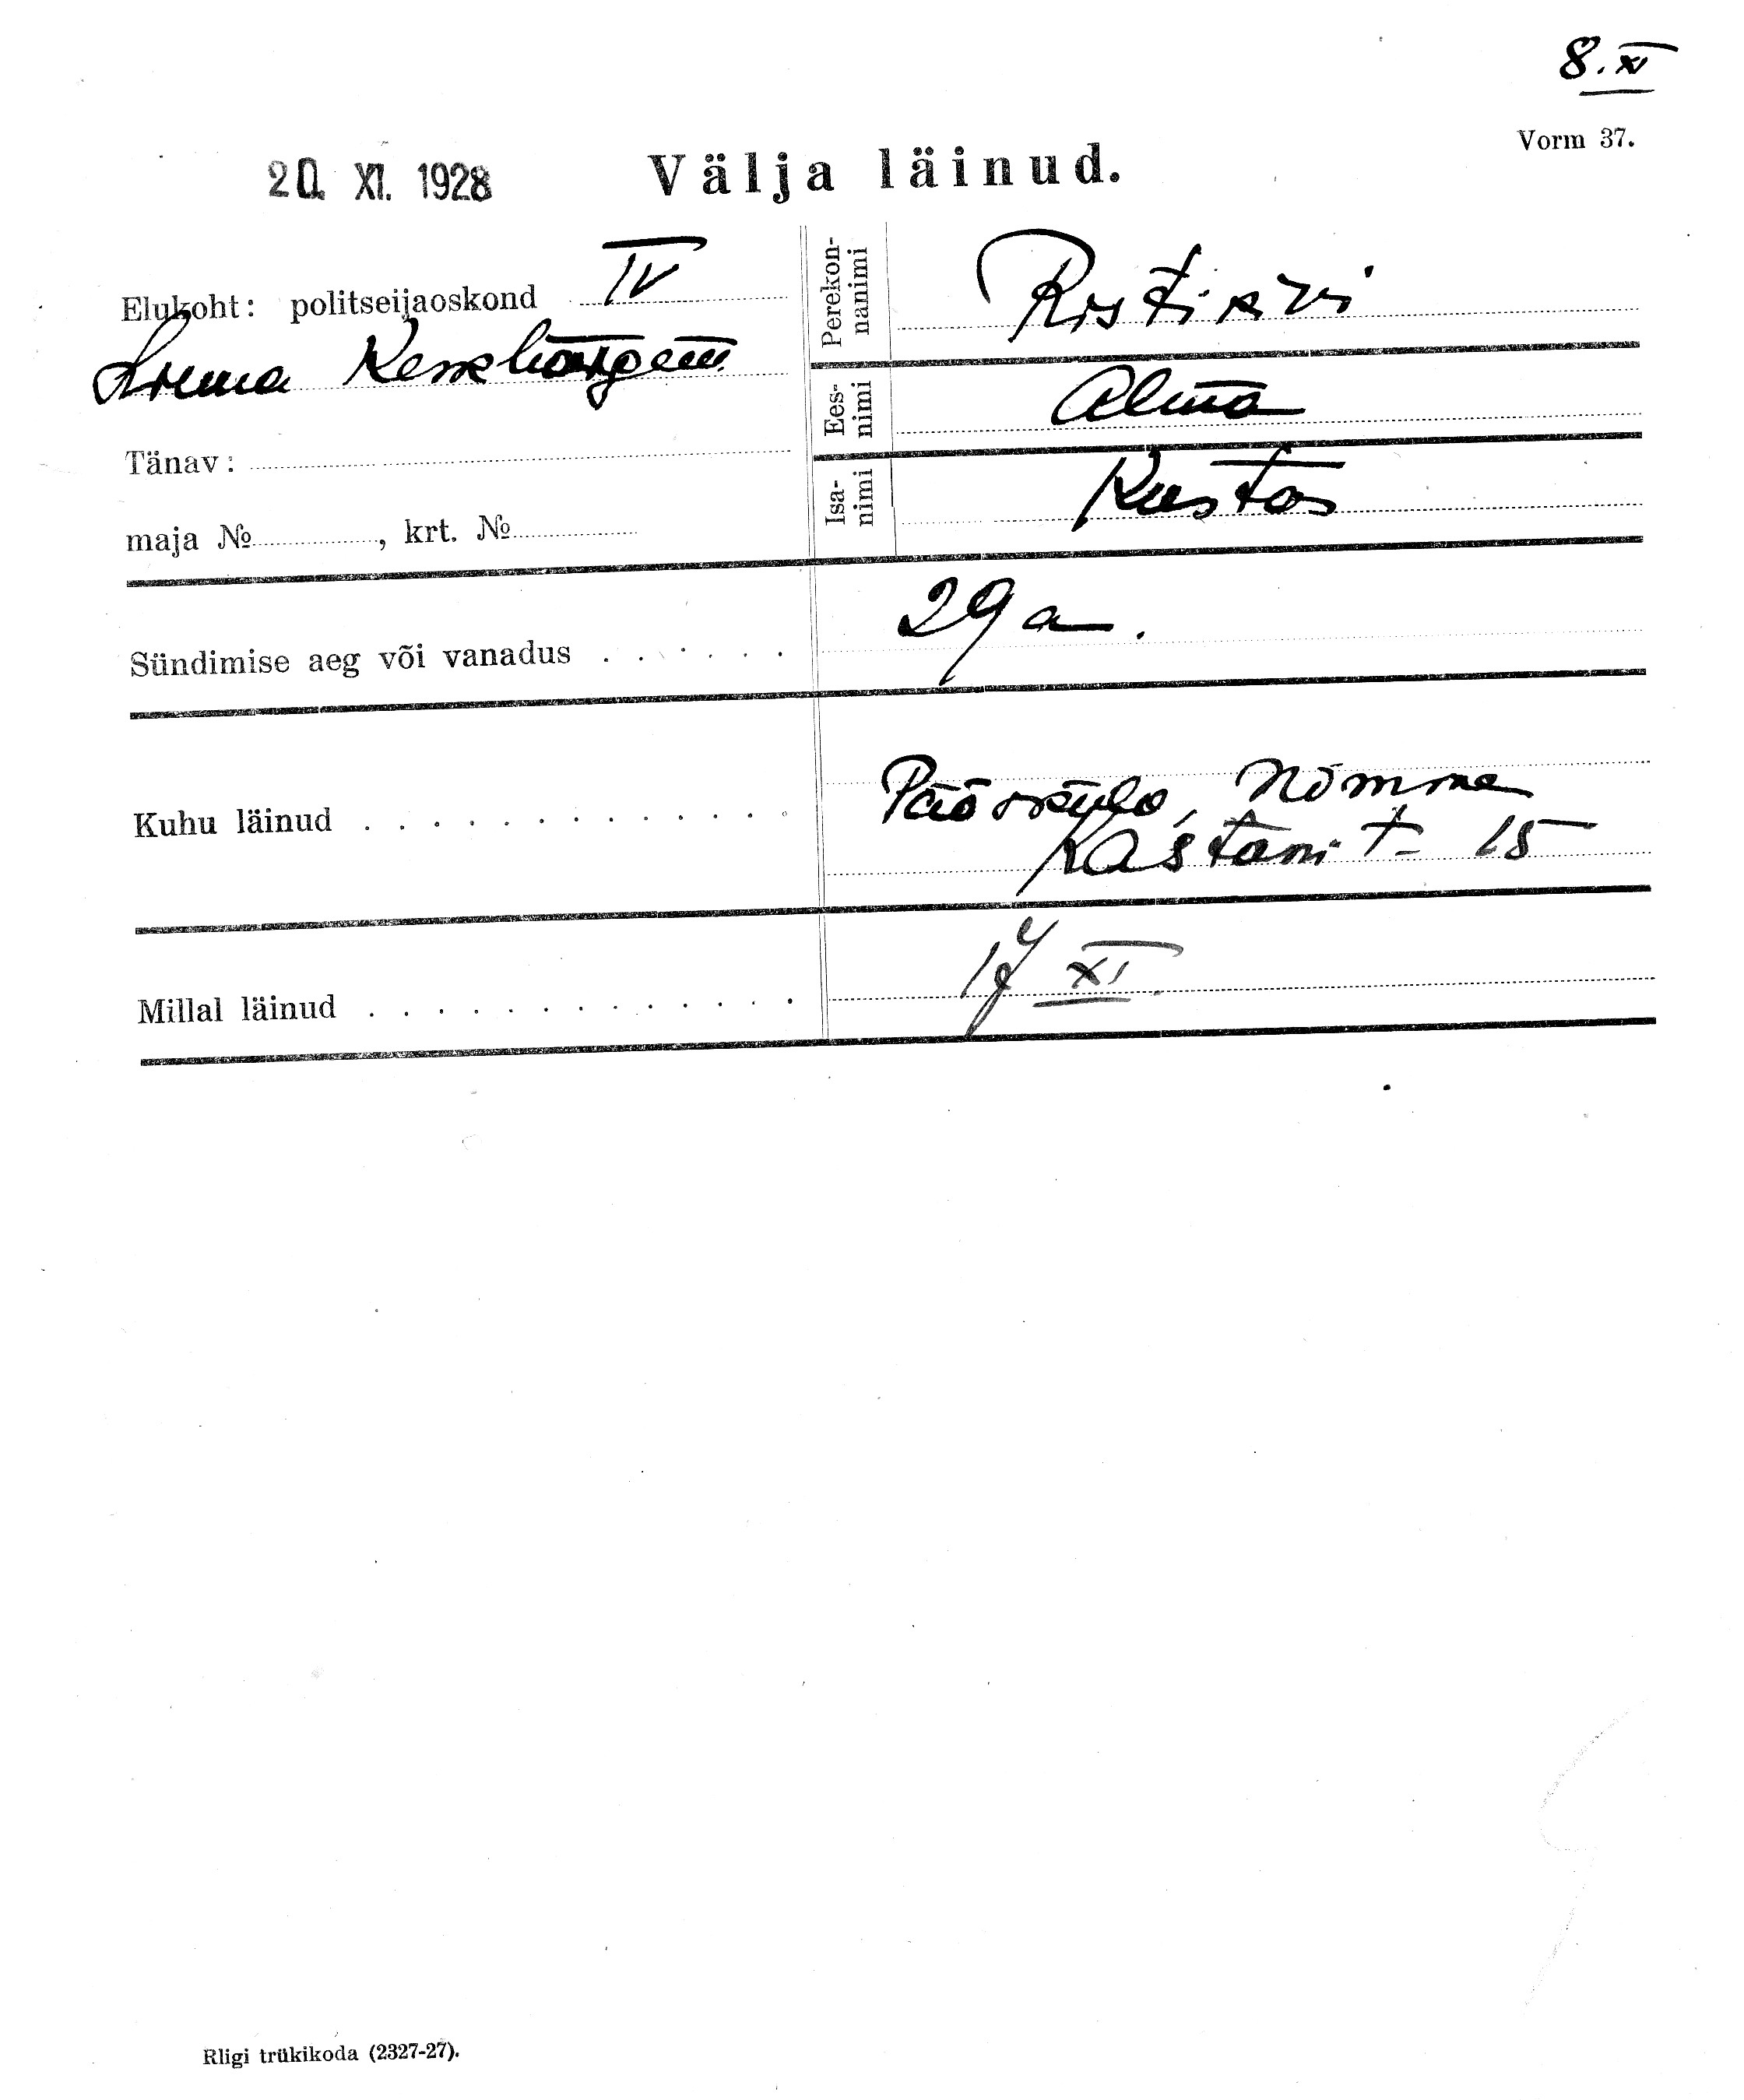 8. XI
Vorm 37.
20. XI. 1928 Välja läinud.
Elukoht: politseijaoskond IV
Tänav:
maja №, krt. №
Perekon-
nanimi
Ees-
nimi Alma
Isa-
nimi Kustas
Sündimise aeg või vanadus . . . . . . 29 a.
Kuhu läinud . . . . . . . . . . . . . Pääsküla, Nõmme
Kastani t- 15
Millal läinud . . . . . . . . . . . . . 17 XI.
Rligi trükikoda (2327-27).